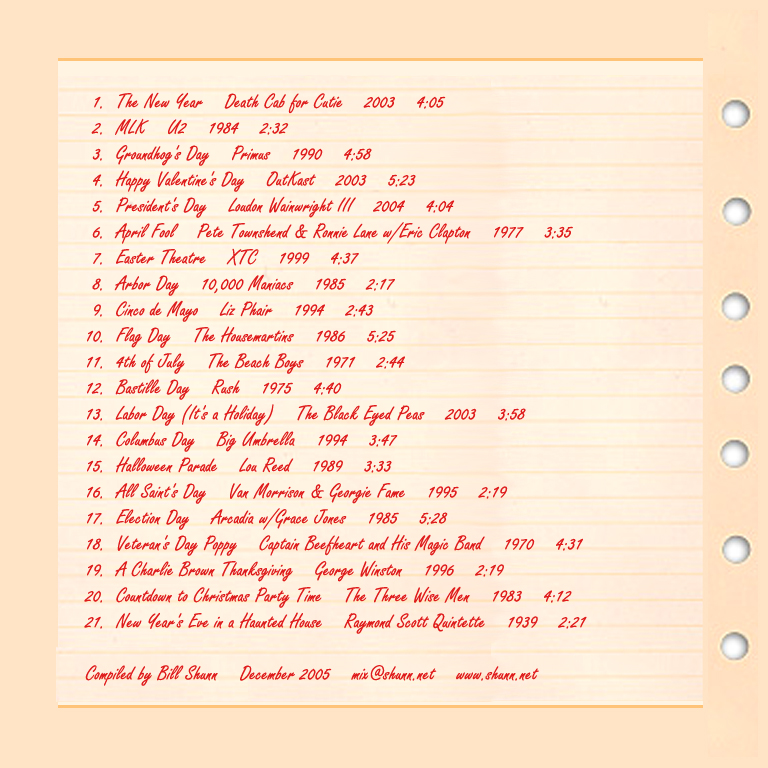 1. The New Year Death Cab for Cutie 2003 4:05
2. MLK U2 1984 2:32
3. Groundhog's Day Primus 1990 4:58
4. Happy Valentine's Day OutKast 2003 5:23
5. President's Day Loudon Wainwright III 2004 4:04
6. April Fool Pete Townshend & Ronnie Lane w/Eric Clapton 1977 3:35
7. Easter Theatre XTC 1999 4:37
8. Arbor Day 10,000 Maniacs 1985 2:17
9. Cinco de Mayo Liz Phair 1994 2:43
10. Flag Day The Housemartins 1986 5:25
11. 4th of July The Beach Boys 1971 2:44
12. Bastille Day Rush 1975 4:40
13. Labor Day (It's a Holiday) The Black Eyed Peas 2003 3:58
14. Columbus Day Big Umbrella 1994 3:47
15. Halloween Parade Lou Reed 1989 3:33
16. All Saint's Day Van Morrison & Georgie Fame 1995 2:19
17. Election Day Arcadia w/Grace Jones 1985 5:28
18. Veteran's Day Poppy Captain Beefheart and His Magic Band 1970 4:31
19. A Charlie Brown Thanksgiving George Winston 1996 2:19
20. Countdown to Christmas Party Time The Three Wise Men 1983 4:12
21. New Year's Eve in a Haunted House Raymond Scott Quintette 1939 2:21
Compiled by Bill Shunn December 2005 mix@shunn.net www.shunn.net